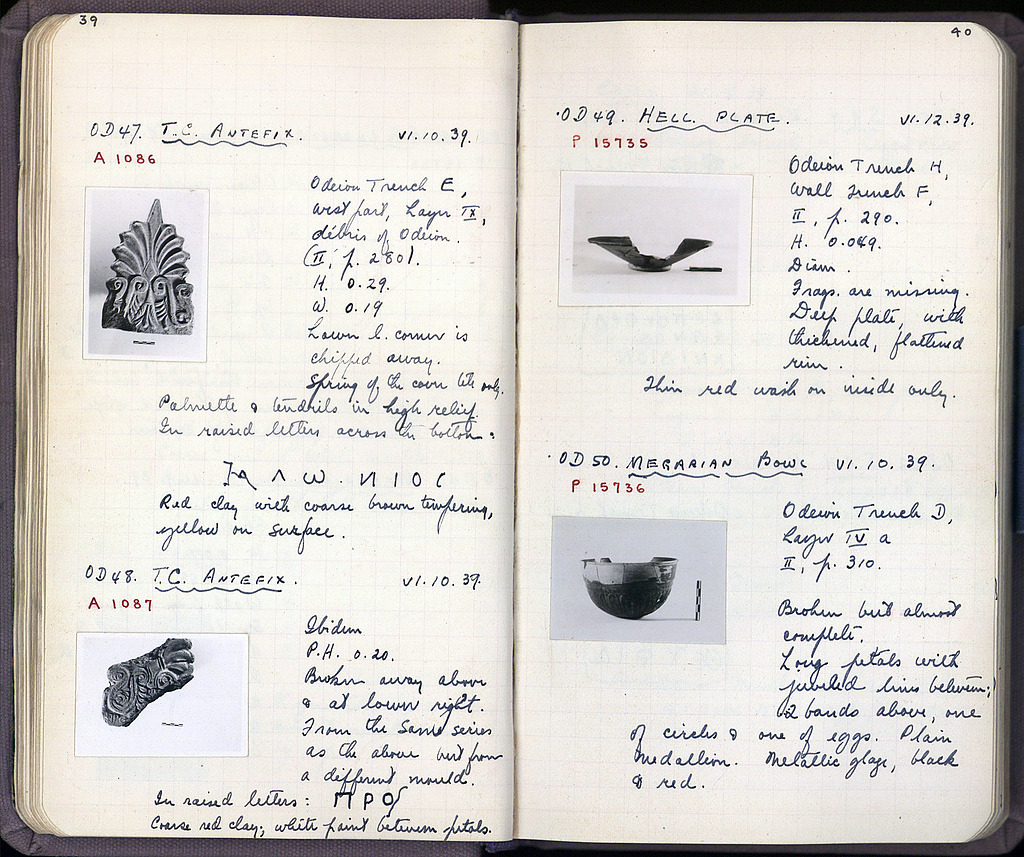 39
OD47. T.C. ANTEFIX. VI.10.39.
A 1086
Odeion Trench E,
west part, Layer IX,
débris of Odeion.
(II, p. 280).
H. 0.29.
W. 0.19
Lower l. corner is
chipped away.
Spring of the cover tile only.
Palmette & tendrils in high relief.
In raised letters across the bottom:
Λ ω . И Ι Ο С
Red clay with coarse brown tempering,
yellow on surface.
OD48. T.C. ANTEFIX. VI.10.39.
A 1087
Ibidem
P.H. 0.20.
Broken away above
& at lower right.
From the same series
as the above but from
a different mould.
In raised letters: ΠΡΟ
Coarse red clay; white paint between petals.
40
OD49. HELL. PLATE. VI.12.39.
P 15735
Odeion Trench H,
Wall Trench F,
II, p. 290.
H. 0.049.
Diam.
Frags. are missing.
Deep plate, with
thickened, flattened
rim.
Thin red wash on inside only.
OD50. MEGARIAN BOWL VI.10.39.
P 15736
Odeion Trench D,
Layer IV a
II, p. 310.
Broken but almost
complete.
Long petals with
jeweled lines between;
2 bands above, one
of circles & one of eggs. Plain
medallion. Metallic glaze, black
& red.